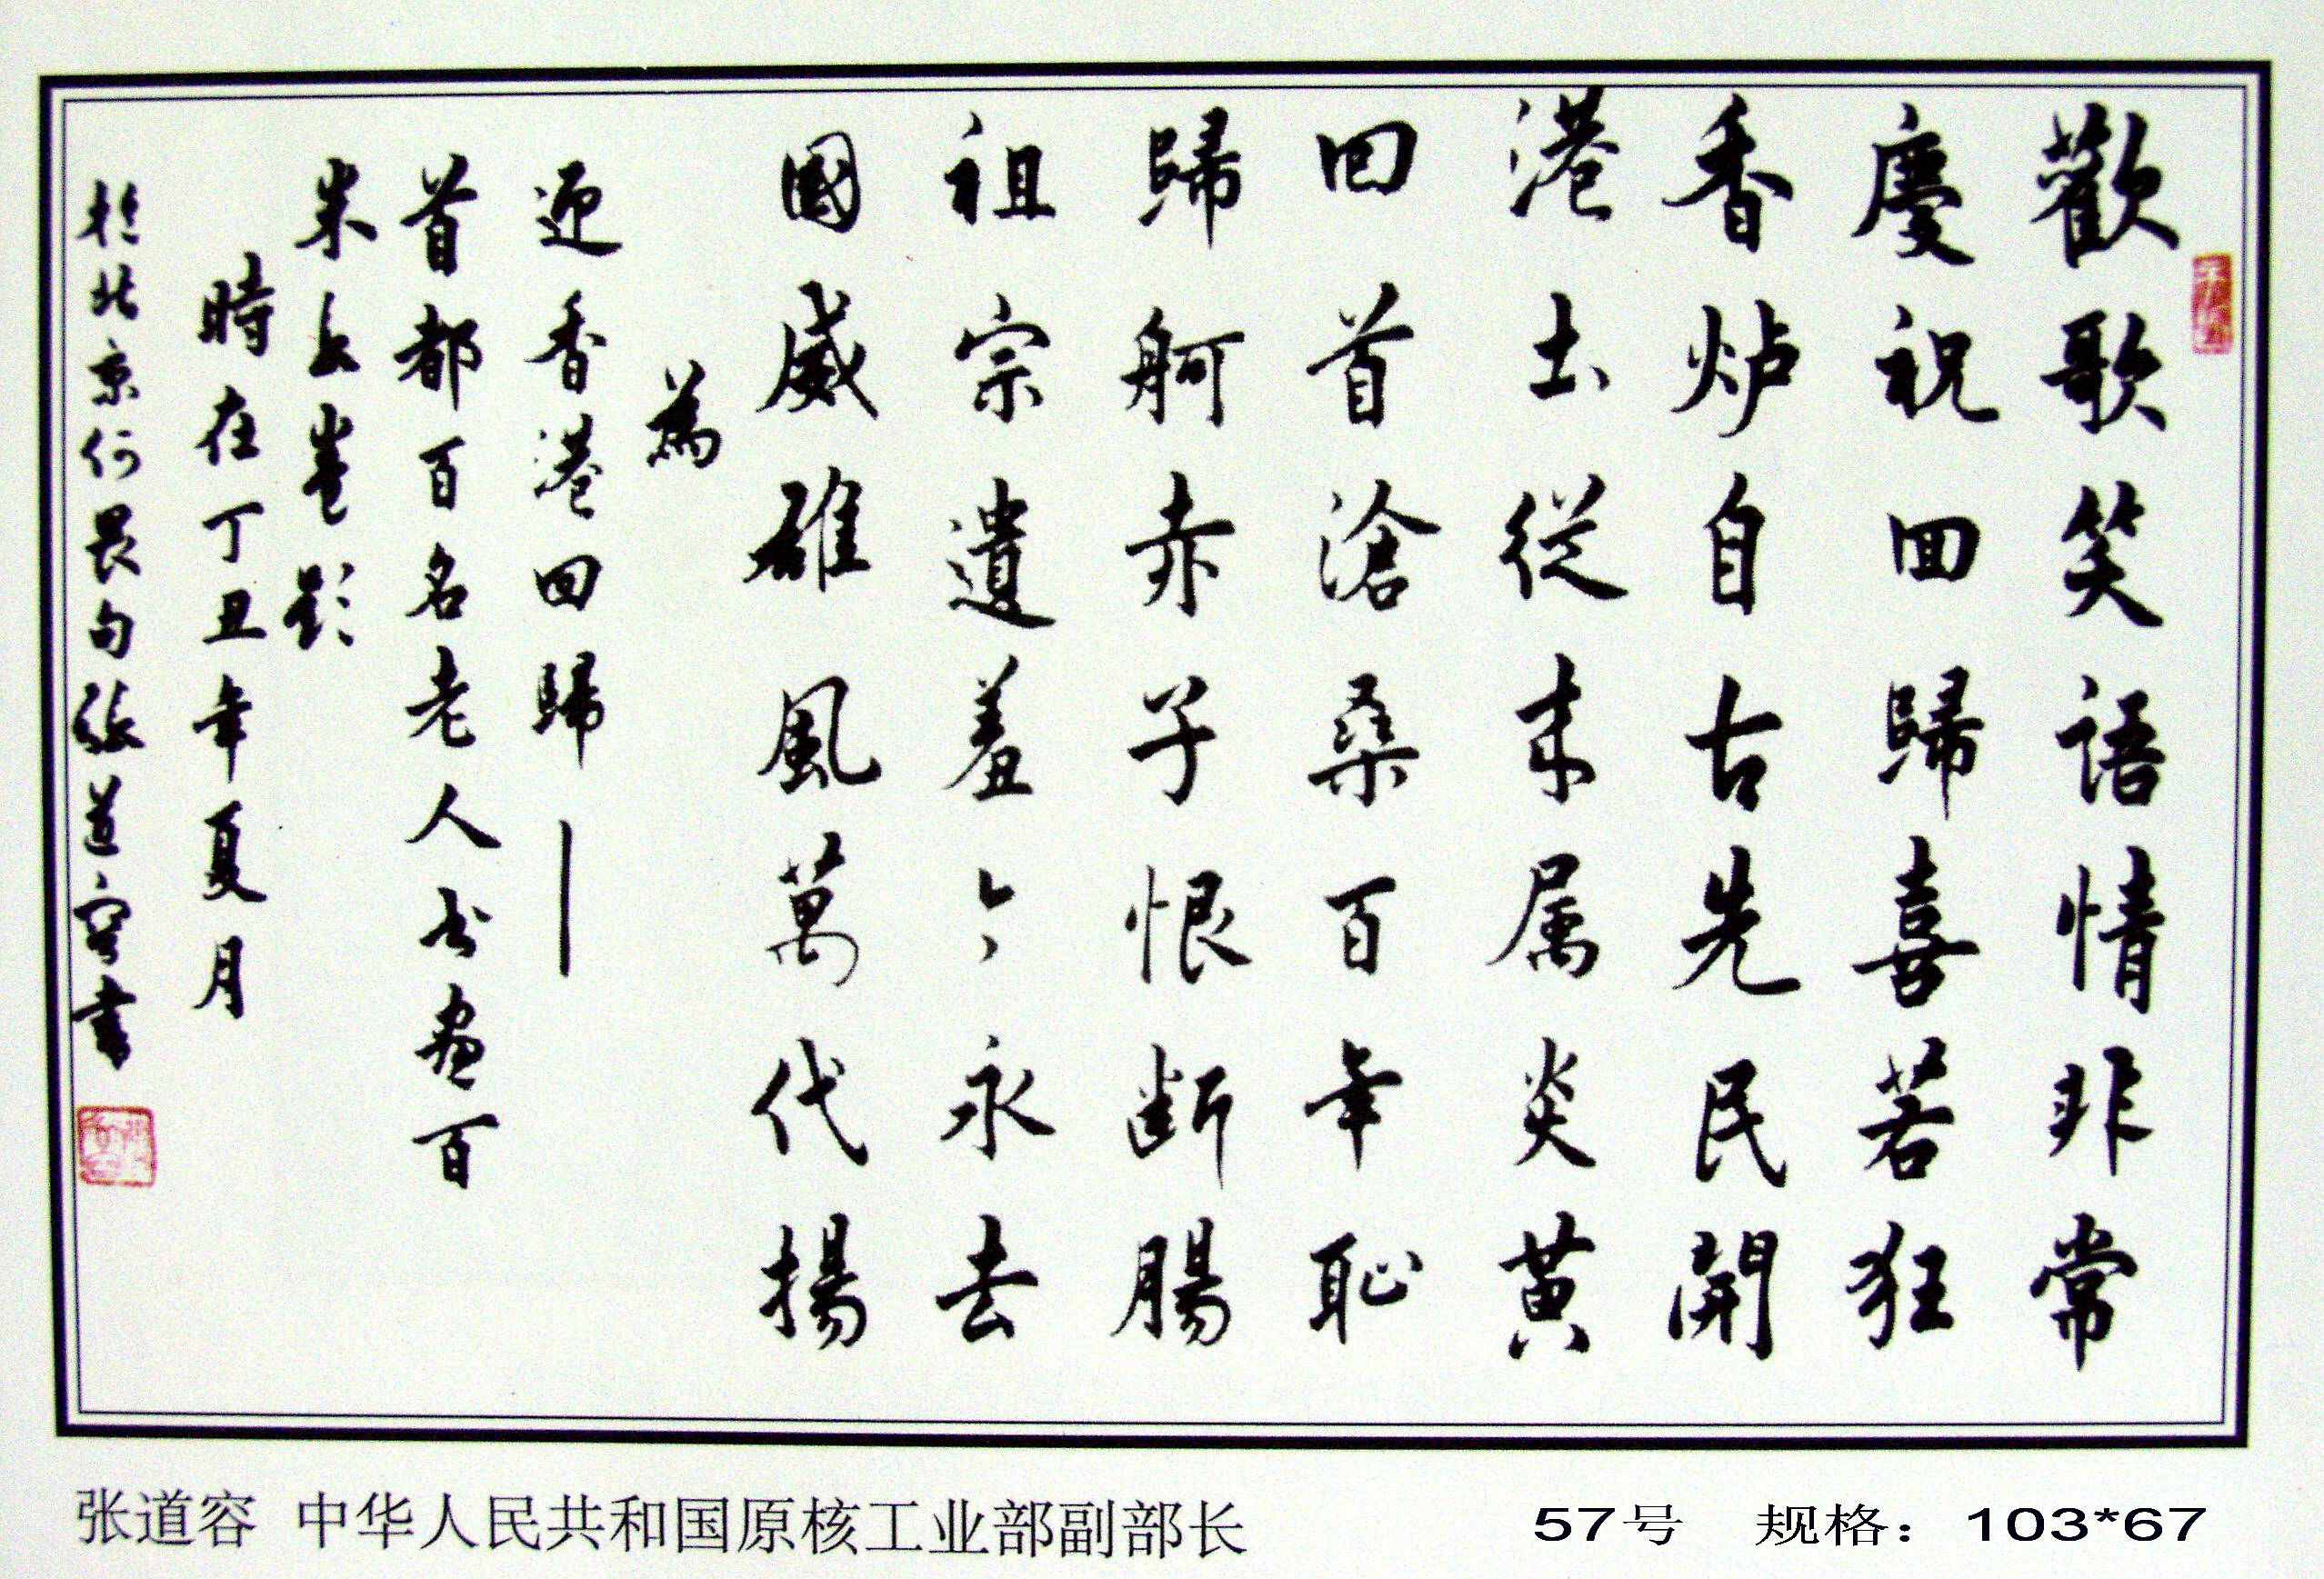 歡歌笑语情非常
慶祝回歸喜若狂
香炉自古先民開
港土從来属炎黄
回首滄桑百年恥
歸舸赤子恨断腸
祖宗遺羞永去
國威雄風萬代揚
為
迎香港回歸—
首都百名老人书画百
米长卷题
時在丁丑年夏月
於北京句張道容書
张道容 中华人民共和国原核工业部副部长
57号 规格：103*67